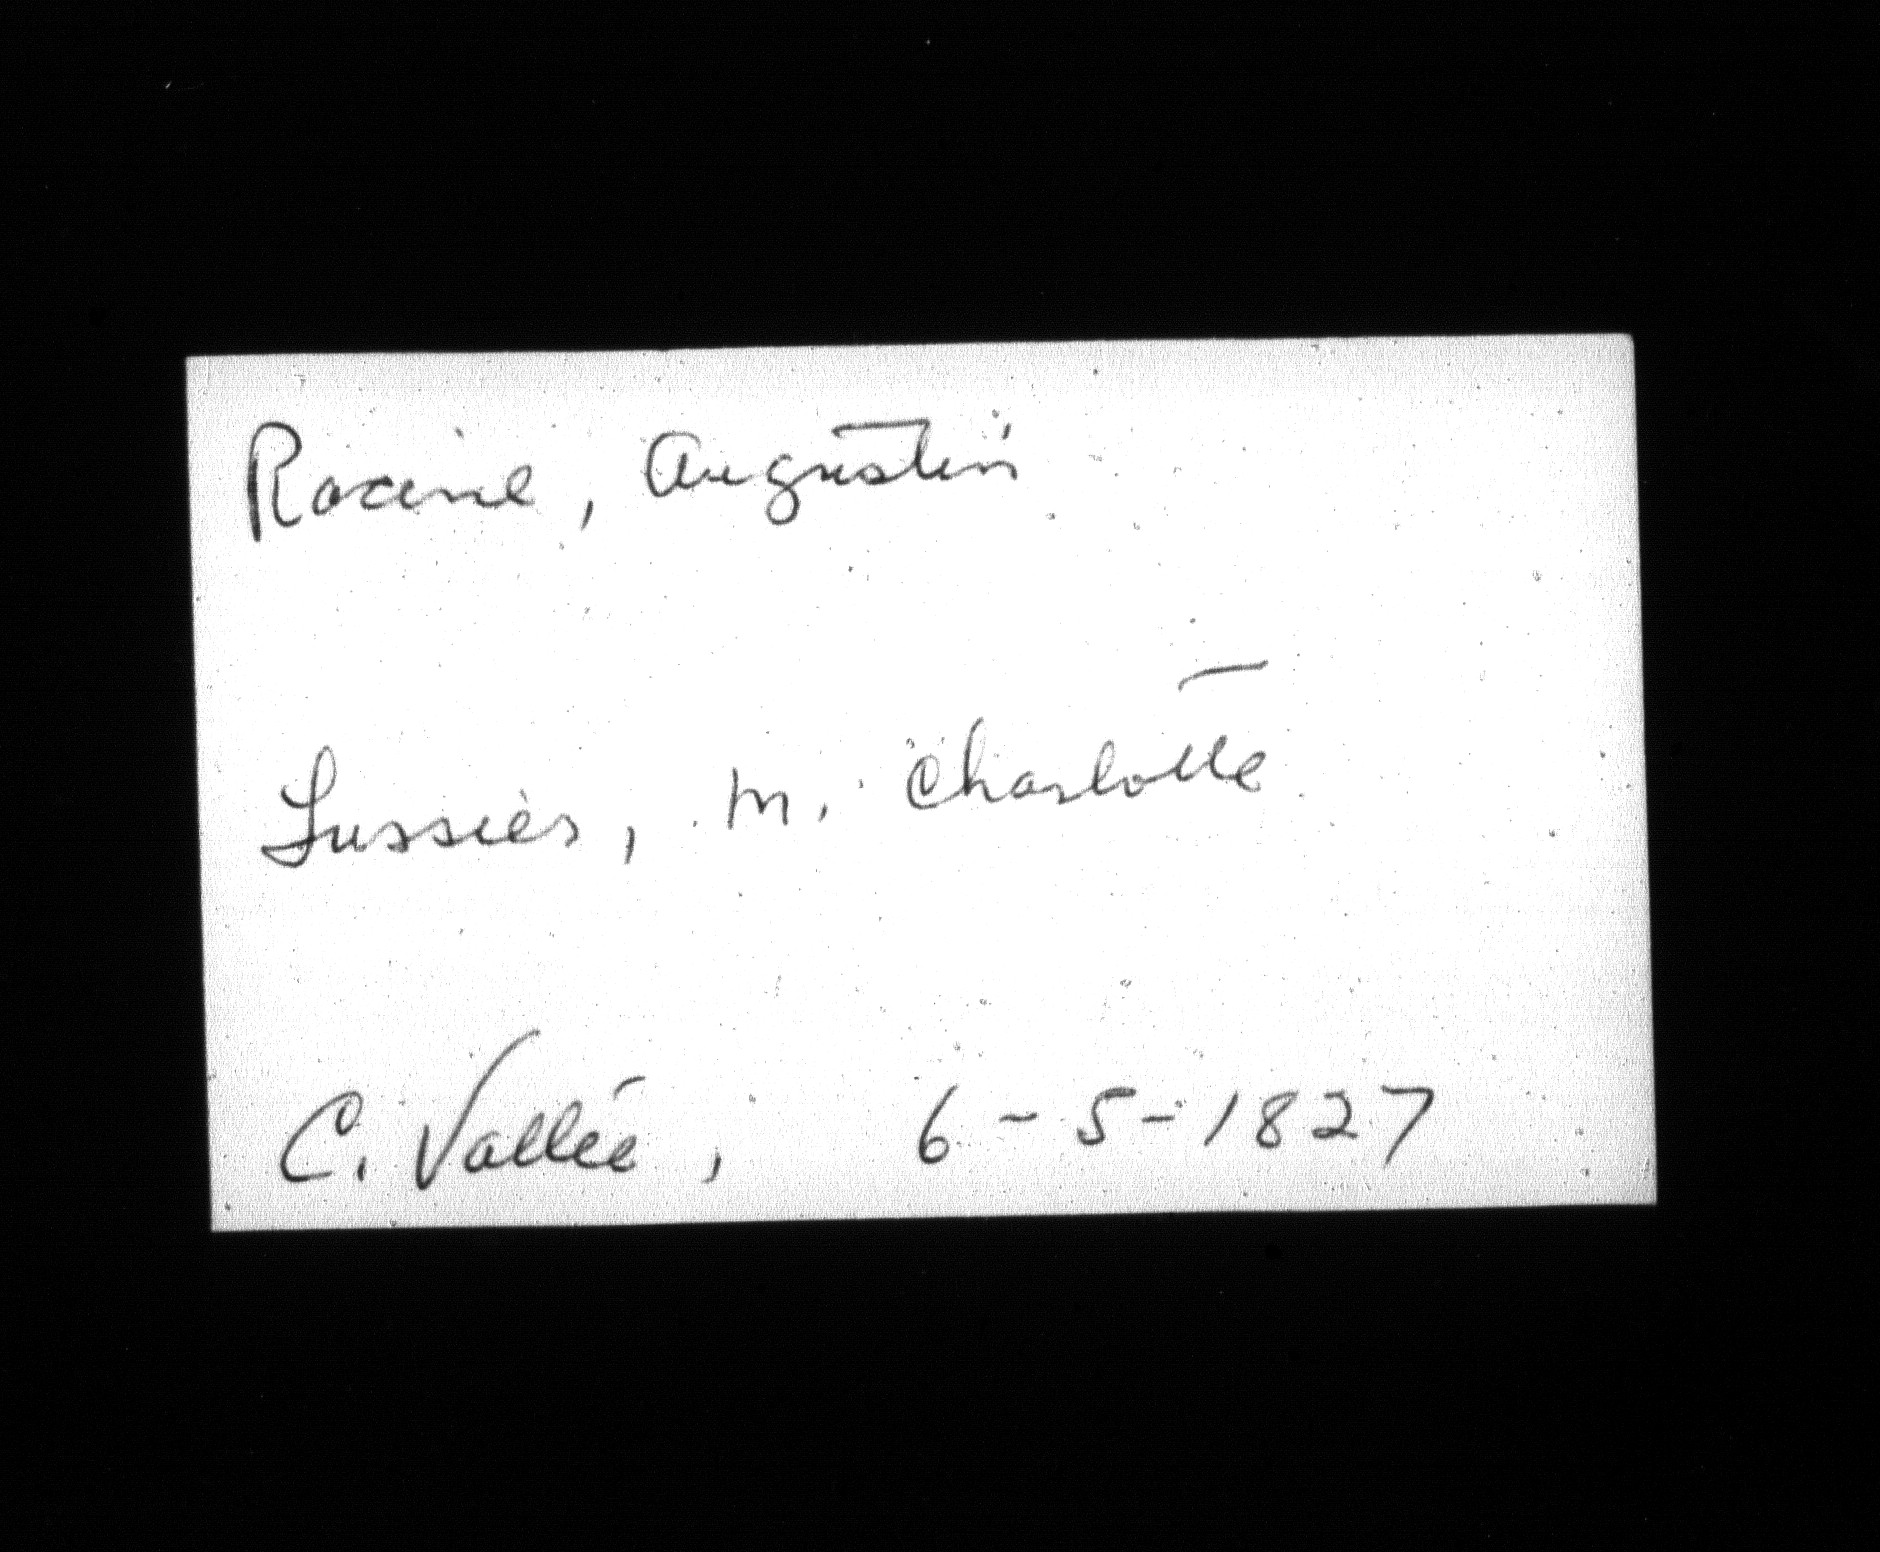 Racine, Augustin
Lussier, M. Charlotte
C. Vallée, 6-5-1827